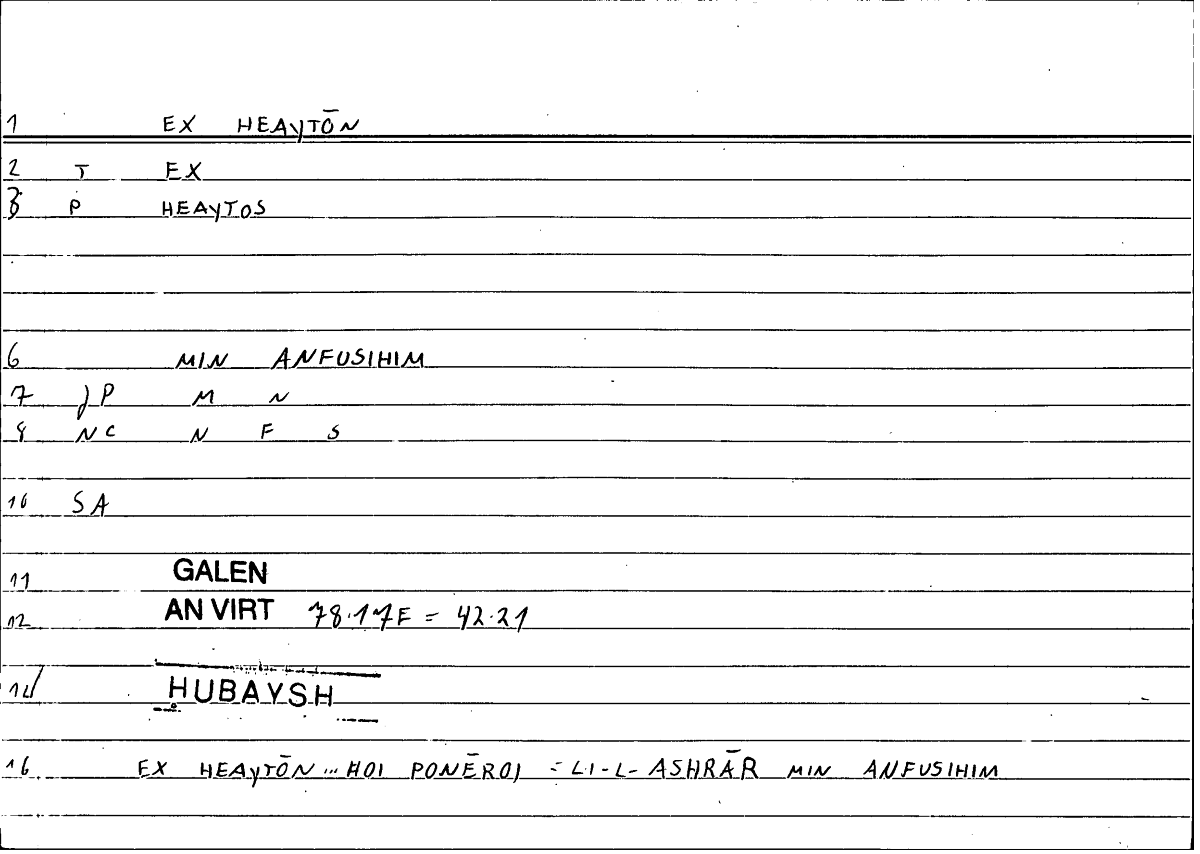 1 EX HEAyTŌN
2 T EX
3 P HEAyTOS
6 MIN ANFUSIHIM
7 JP M N
8 NC N F S
10 SA
11 GALEN
12 AN VIRT 78.17F = 42.21
14 ḤUBAYSH
16 EX HEAyTŌN ... HOI PONĒROI = LI-L-ASHRĀR MIN ANFUSIHIM